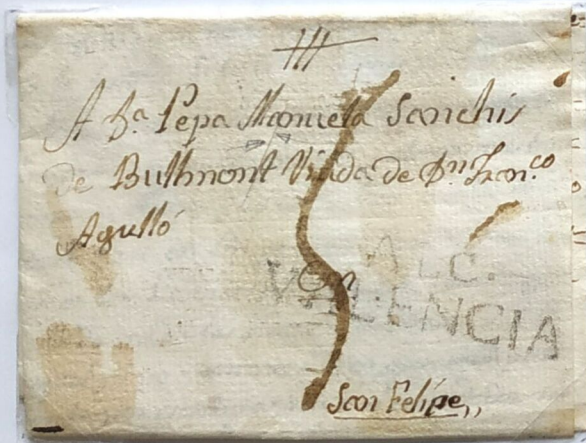 A Dª Pepa Manuela Sanchis
de Bullmont Viuda de Dn Franco
Agulló
5
ALC.
VALENCIA
en
San Felipe